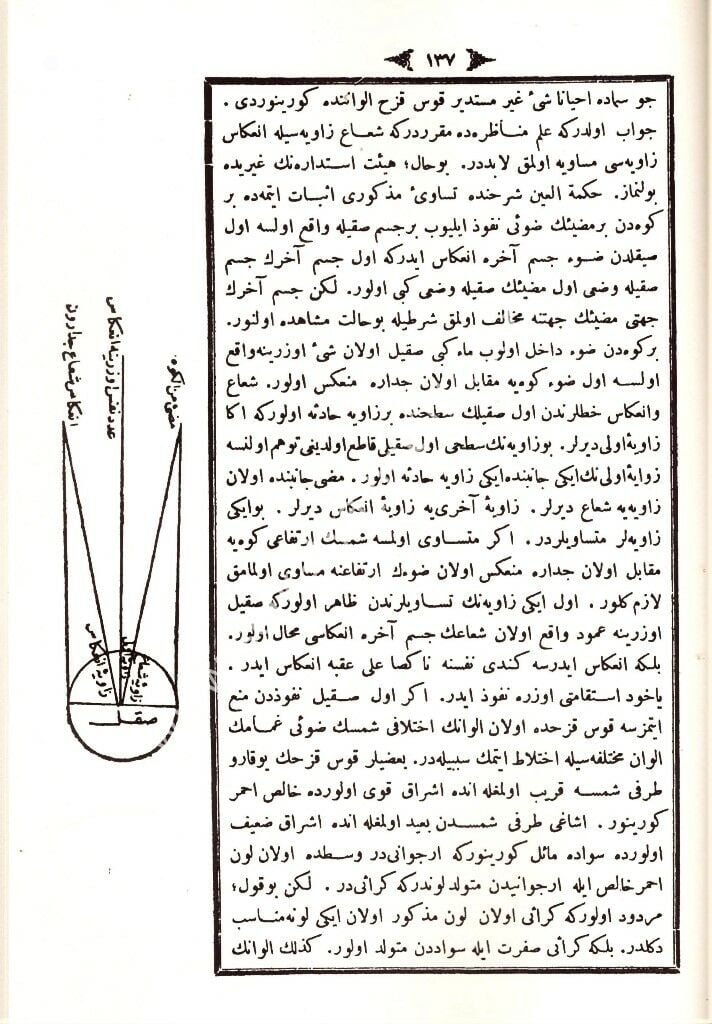 ١٣٧
جو سماده احيانا شئ غير مستدير قوس قزح الواننده كورينوردى .
جواب اولدركه علم مناظرده مقرردركه شعاع زاويه‌سيله انعكاس
زاويه‌سى مساويه اولمق لابددر. بوحال؛ هيئت استداره‌نك غيريده
بولنماز. حكمة العين شرحنده تساوئ مذكورى اثبات ايتمه‌ده بر
كوه‌دن برمضيئك ضوئى نفوذ ايليوب برجسم صقيله واقع اولسه اول
صيقلدن ضوء جسم آخره انعكاس ايدركه اول جسم آخرك جسم
صقيله وضى اول مضيئك صقيله وضى كبى اولور. لكن جسم آخرك
جهتى مضيئك جهتنه مخالف اولمق شرطيله بوحالت مشاهده اولنور.
بركوه‌دن ضوء داخل اولوب ماء كبى صقيل اولان شئ اوزرينه واقع
اولسه اول ضوء كوه‌يه مقابل اولان جداره منعكس اولور. شعاع
وانعكاس خطلرندن اول صقيلك سطحنده برزاويه حادثه اولوركه اكا
زاوية اولى ديرلر. بوزاويه‌نك سطحى اول صقيلى قاطع اولديغى توهم اولنسه
زواية اولى‌نك ايكى جانبنده ايكى زاويه حادثه اولور . مضى جانبنده اولان
زاويه‌يه شعاع ديرلر . زاوية آخرى‌يه زاوية انعكاس ديرلر . بوايكى
زاويه‌لر متساويلردر . اكر متساوى اولمسه شمسك ارتفاعى كوه‌يه
مقابل اولان جداره منعكس اولان ضوءك ارتفاعنه مساوى اولمامق
لازم كلور . اول ايكى زاويه‌نك تساويلرندن ظاهر اولوركه صقيل
اوزرينه عمود واقع اولان شعاعك جسم آخره انعكاسى محال اولور.
بلكه انعكاس ايدرسه كندى نفسنه ناكصا على عقبه انعكاس ايدر .
ياخود استقامتى اوزره نفوذ ايدر. اكر اول صقيل نفوذدن منع
ايتمزسه قوس قزحده اولان الوانك اختلافى شمسك ضوئى غمامك
الوان مختلفه‌سيله اختلاط ايتمك سببيله‌در. بعضيلر قوس قزحك يوقارو
طرفى شمسه قريب اولمغله انده اشراق قوى اولورده خالص احمر
كورينور . اشاغى طرفى شمسدن بعيد اولمغله انده اشراق ضعيف
اولورده سواده مائل كورينوركه ارجوانى‌در وسطده اولان لون
احمر خالص ايله ارجوانيدن متولد لوندركه كرائى‌در . لكن بوقول؛
مردود اولوركه كرائى اولان لون مذكور اولان ايكى لونه مناسب
دكلدر. بلكه كرائى صفرت ايله سواددن متولد اولور. كذلك الوانك
مضئ من الكوه
انعكاس شعاع جدارون
زاوية انعكاس
زاوية شعاع